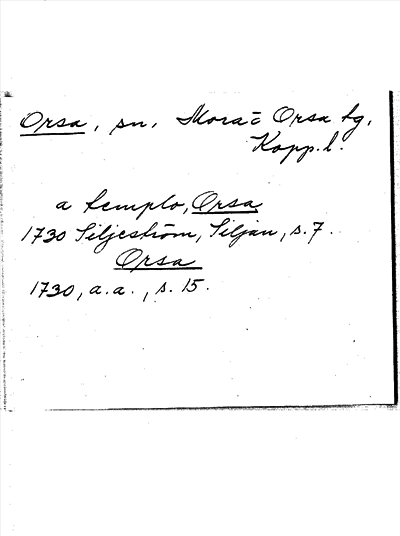 Orsa, sn, Mora= Orsa tg,
Kopp. l.
a templo, Orsa
1730 Siljeström, Siljan, s. 7.
Orsa
1730, a. a., s. 15.